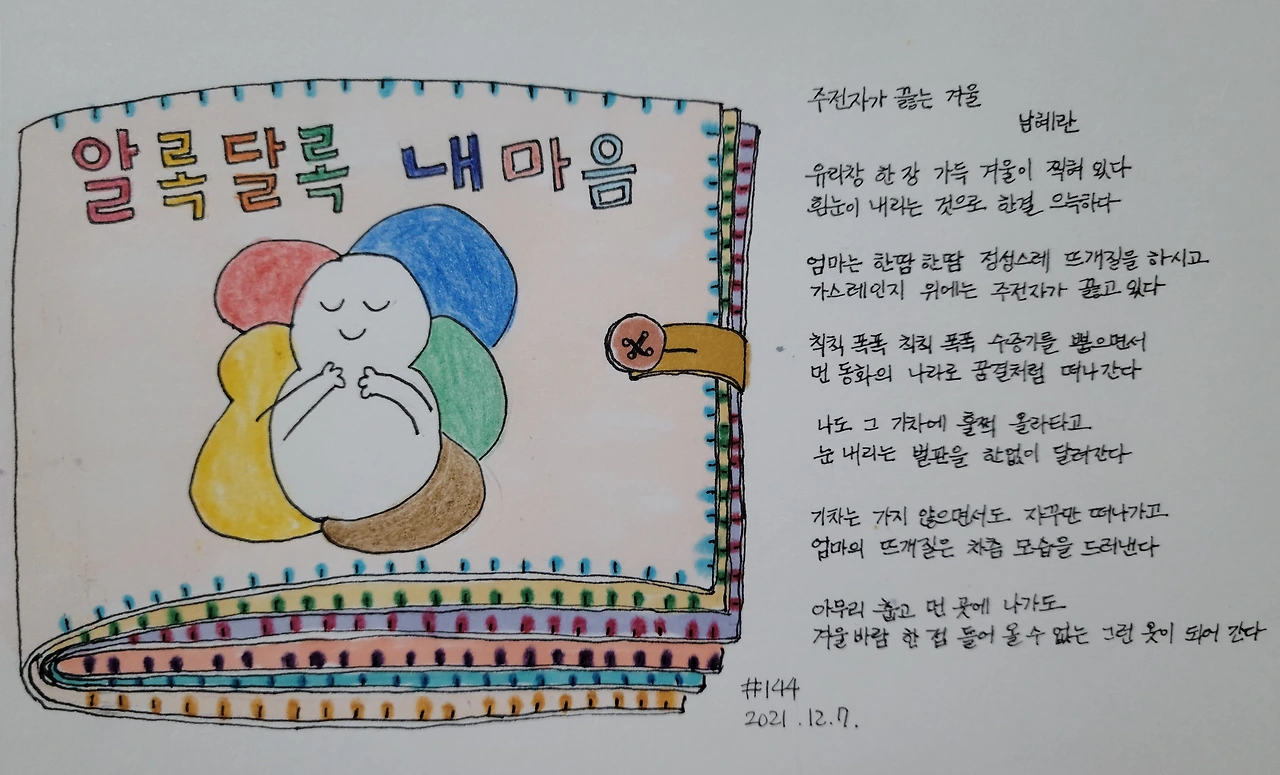 알록달록 내 마음
주전자가 끓는 겨울
남혜란
유리창 한 장 가득 겨울이 찍혀 있다
흰눈이 내리는 것으로 한결 으늑하다
엄마는 한땀 한땀 정성스레 뜨개질을 하시고
가스레인지 위에는 주전자가 끓고 있다
칙칙 폭폭 칙칙 폭폭 수증기를 뿜으면서
먼 동화의 나라로 꿈결처럼 떠나간다
나도 그 기차에 훌쩍 올라타고
눈 내리는 벌판을 한없이 달려간다
기차는 가지 않으면서도 자꾸만 떠나가고
엄마의 뜨개질은 차츰 모습을 드러낸다
아무리 춥고 먼 곳에 나가도
겨울 바람 한 점 들어 올 수 없는 그런 옷이 되어 간다
#144
2021.12.7.